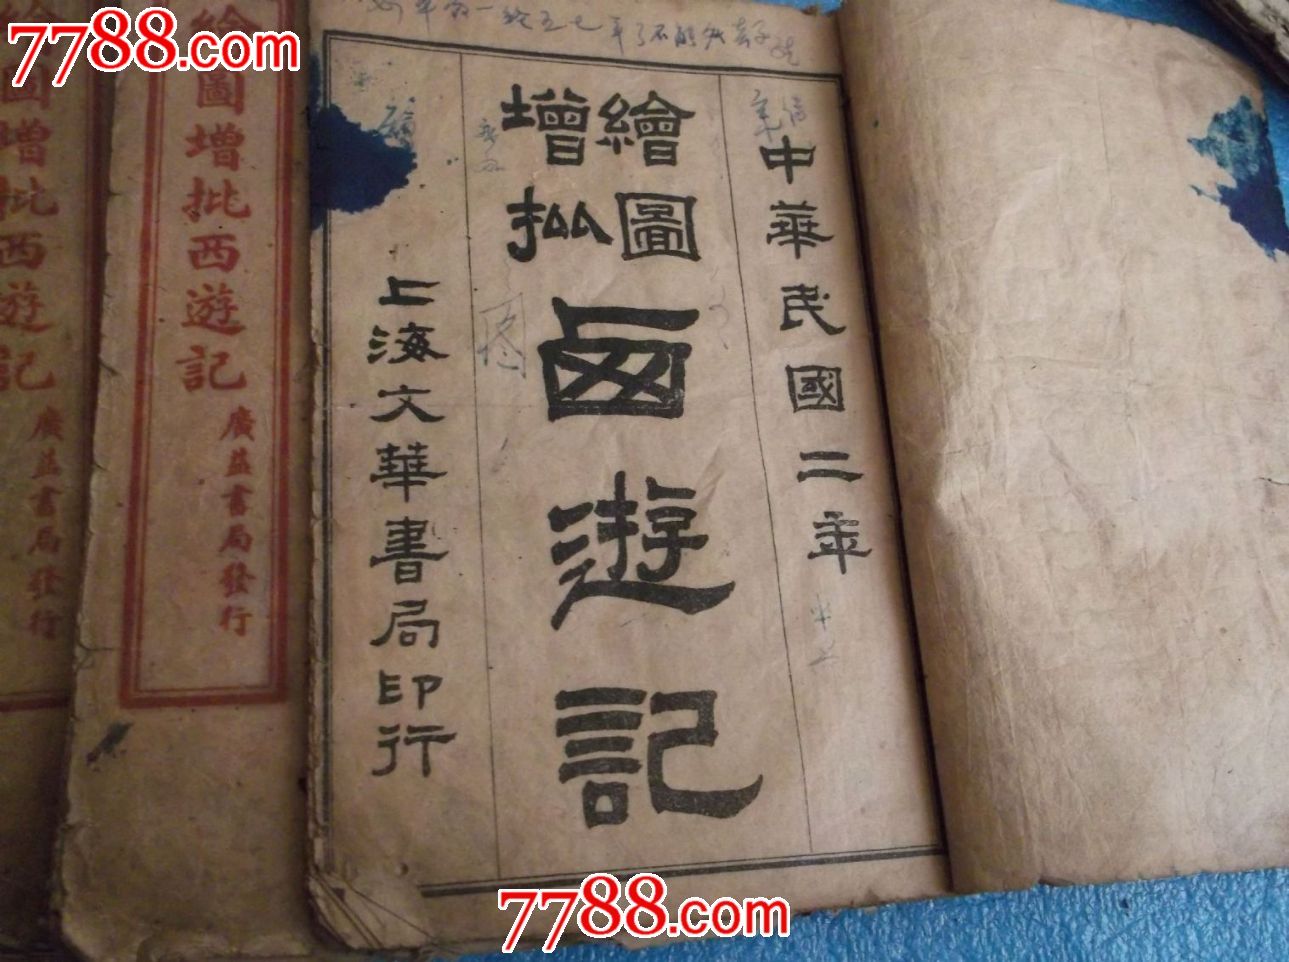 7788.com
7788.com
7788.com
中華民國二年
繪圖
增批
西遊記
上海文華書局印行
繪圖增批西遊記
廣益書局發行
繪圖增批西遊記
廣益書局發行
7788.com